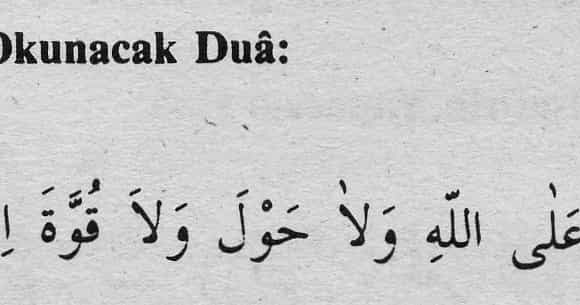 Okunacak Duâ:
عَلٰى اللّهِ وَلاٰ حَوْلَ وَلاَ قُوَّةَ اِ